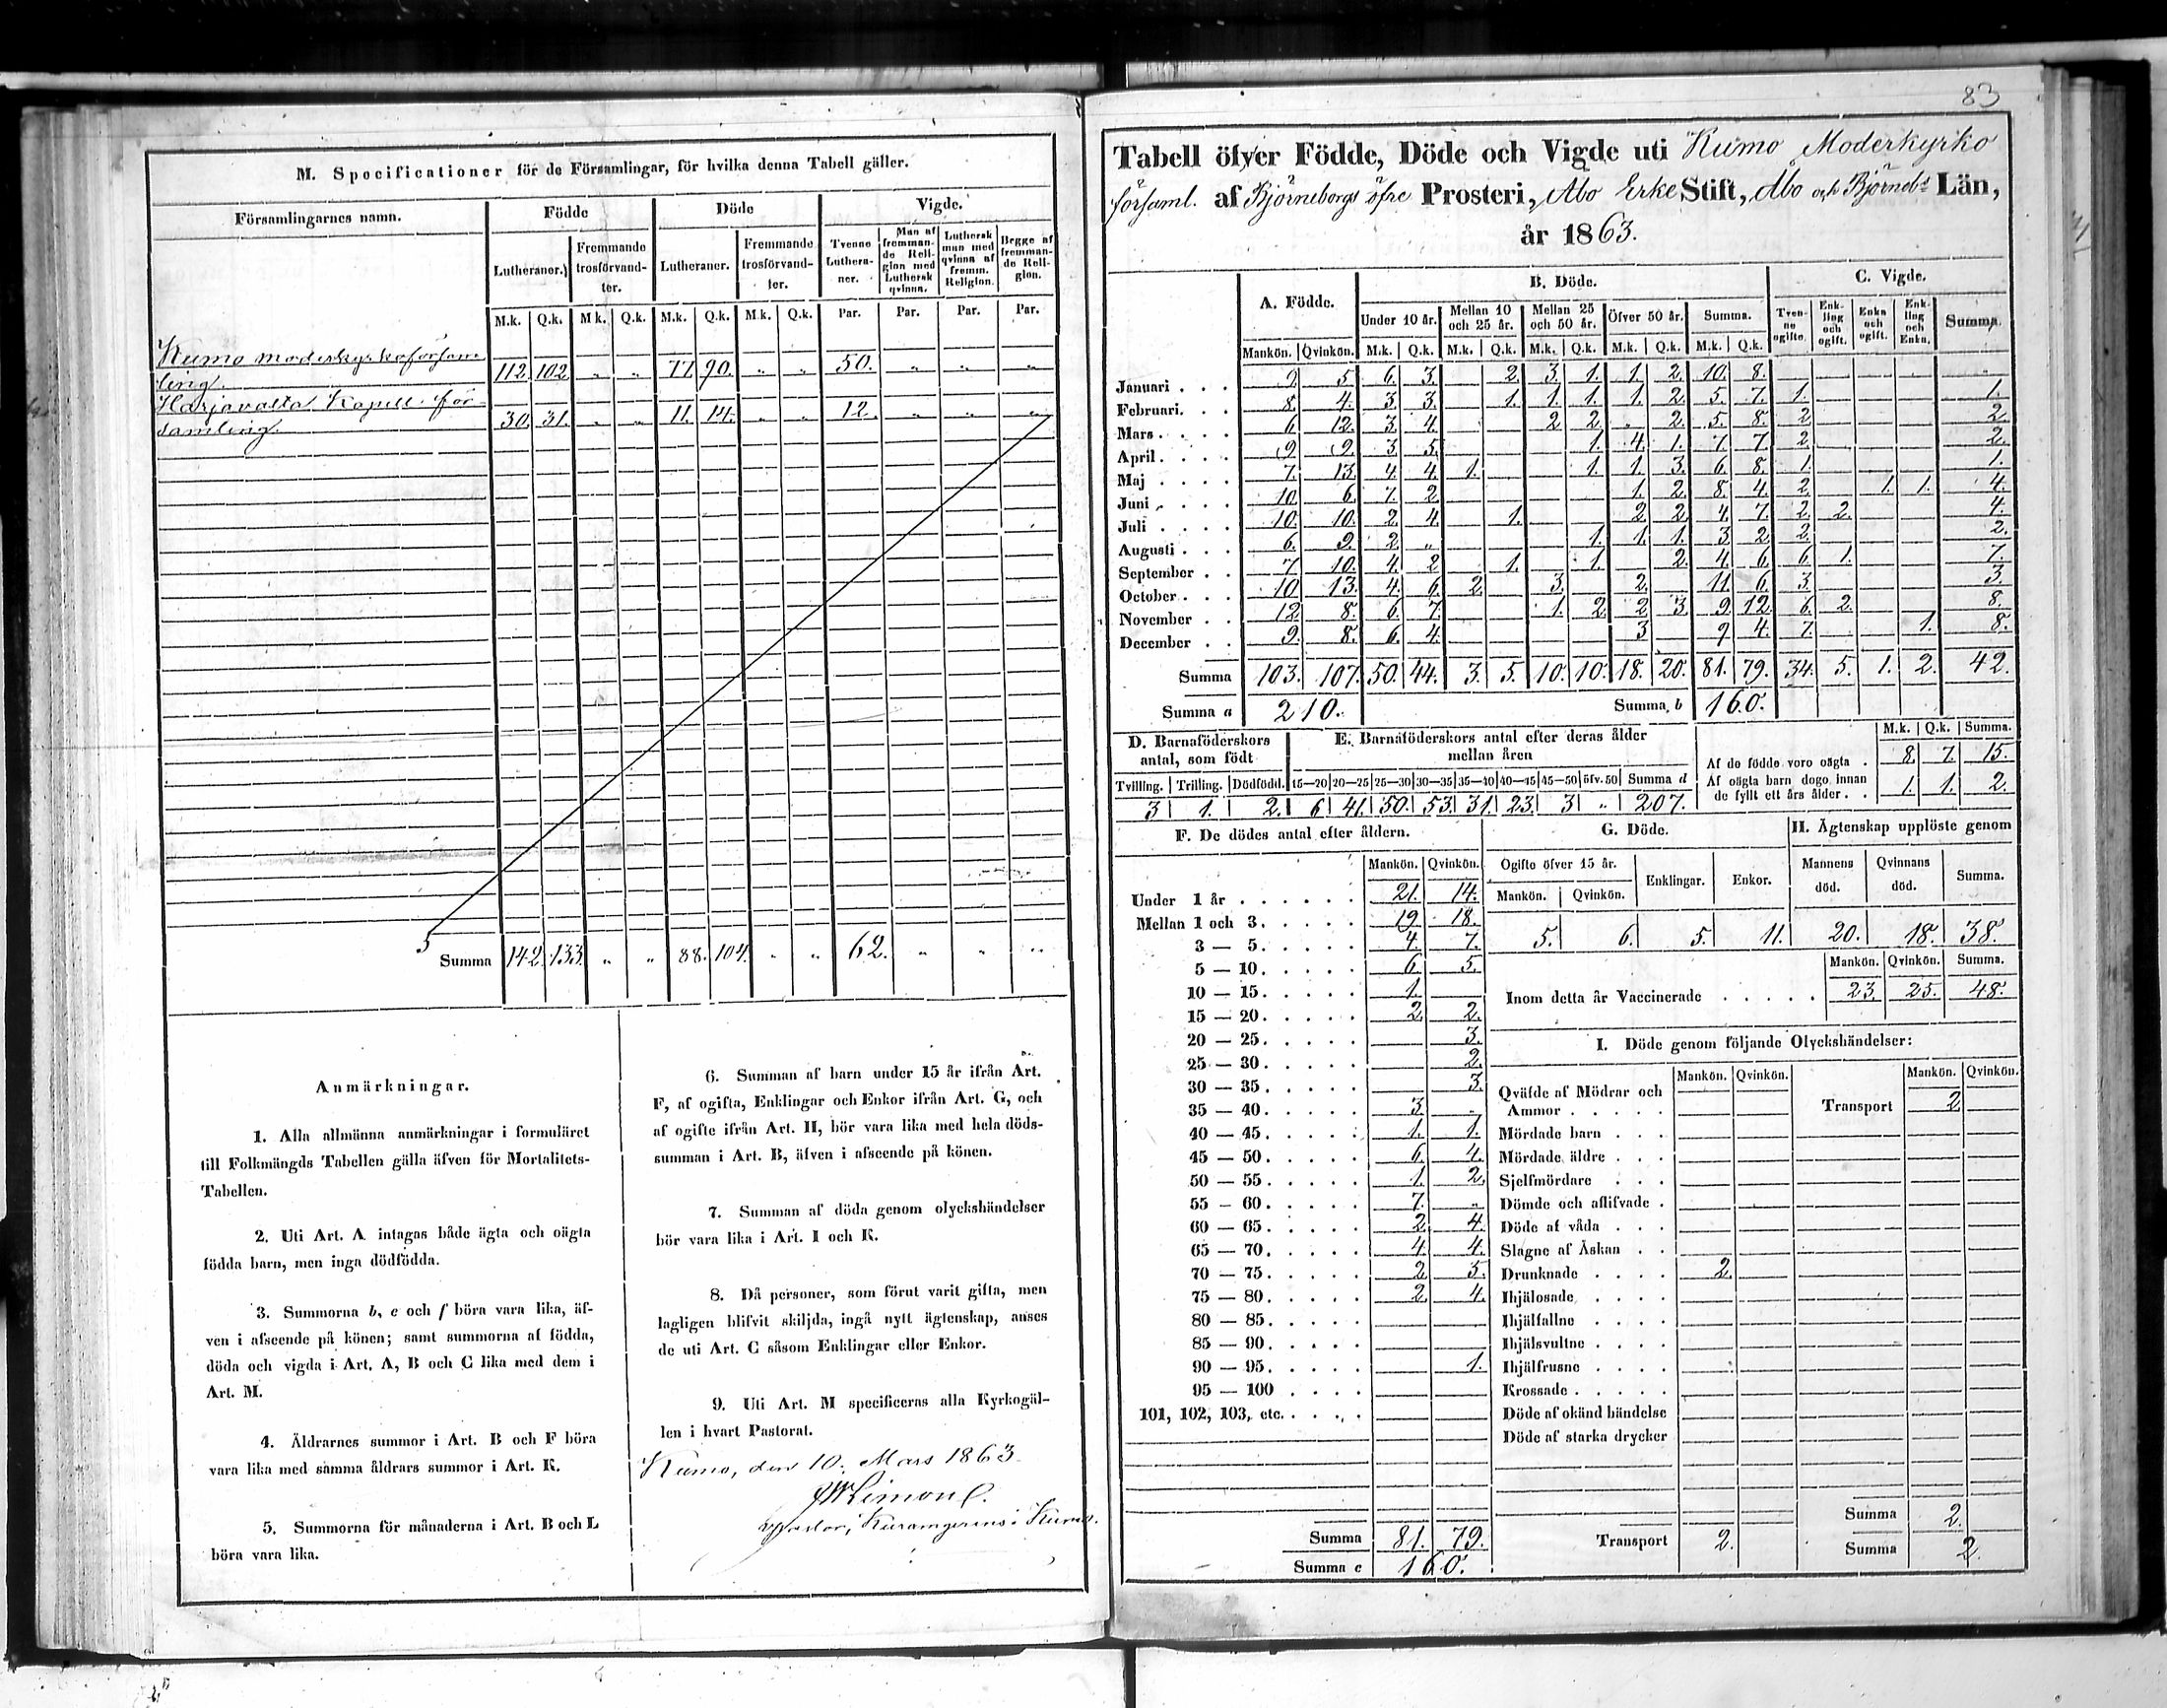 M. Specificationer för de Församlingar, för hvilka denna Tabell gäller.
Församlingarnes namn. Födde Döde Vigde.
Lutheraner. Fremmande trosförvandter. Lutheraner. Fremmande trosförvandter. Tvenne Lutheraner. Man af fremmande Religion med Luthersk qvinna. Luthersk man med qvinna af fremm. Religion. Begge af fremmande Religion.
M.k. Q.k. M k. Q.k. M.k. Q.k. M.k. Q.k. Par. Par. Par. Par.
Kumo moderkyrkoförsam
ling. 112. 102 „ „ 77 90. „ „ 50. „ „ „
Harjavalta Kapell för-
samling. 30. 31. „ „ 11. 14. „ „ 12. „ „ „
Summa 142. 133. „ „ 88. 104. „ „ 62. „ „ „
Anmärkningar.
1. Alla allmänna anmärkningar i formuläret
till Folkmängds Tabellen gälla äfven för Mortalitets-
Tabellen.
2. Uti Art. A intagas både ägta och oägta
födda barn, men inga dödfödda.
3. Summorna b, e och f böra vara lika, äf-
ven i afseende på könen; samt summorna af födda,
döda och vigda i Art. A, B och C lika med dem i
Art. M.
4. Åldrarnes summor i Art. B och F böra
vara lika med samma åldrars summor i Art. K.
5. Summorna för månaderna i Art. B och L
böra vara lika.
6. Summan af barn under 15 år ifrån Art.
F, af ogifta, Enklingar och Enkor ifrån Art. G, och
af ogifte ifrån Art. H, bör vara lika med hela döds-
summan i Art. B, äfven i afseende på könen.
7. Summan af döda genom olyckshändelser
bör vara lika i Art. I och K.
8. Då personer, som förut varit gifta, men
lagligen blifvit skiljda, ingå nytt ägtenskap, anses
de uti Art. C såsom Enklingar eller Enkor.
9. Uti Art. M specificeras alla Kyrkogäl-
len i hvart Pastorat.
Kumo, den 10. Mars 1863.
83
Tabell öfver Födde, Döde och Vigde uti Kumo Moderkyrko
församl. af Björneborgs öfre Prosteri, Åbo Erke Stift, Åbo och Björnebs Län,
år 1863.
A. Födde. B. Döde. C. Vigde.
Under 10 år. Mellan 10 och 25 år. Mellan 25 och 50 år. Öfver 50 år. Summa. Tvenne ogifte. Enkling och ogift. Enka och ogift. Enkling och Enka. Summa.
Mankön. Qvinkön. M.k. Q.k. M.k. Q.k. M.k. Q.k. M.k. Q.k. M.k. Q.k.
Januari . . . 9. 5. 6. 3. 2. 3. 1. 1. 2. 10. 8.
Februari. . . 8. 4. 3. 3. 1. 1. 1. 1. 2. 5. 7. 1. 1.
Mars . . . . 6. 12. 3. 4. 2 2. „ 2. 5. 8. 2. 2.
April . . . . 9. 9. 3. 5. 1. 4. 1. 7. 7. 2. 2.
Maj . . . . 7. 13. 4. 4. 1. 1. 1. 3. 6. 8. 1. 1.
Juni . . . . 10. 6. 7. 2. 1. 2. 8. 4. 2. 1. 1. 4.
Juli . . . . 10. 10. 2. 4. 1. 2. 2. 4. 7. 2. 2. 4.
Augusti . . . 6. 9. 2. „ 1. 1. 1. 3. 2. 2. 2.
September . . 7. 10. 4. 2. 1. 1. 2. 4. 6. 6. 1. 7.
October . . . 10. 13. 4. 6. 2. 3. 2. 11. 6. 3. 3.
November . . 12. 8. 6. 7. 1. 2. 2. 3. 9. 12. 6. 2. 8.
December . . 9. 8. 6. 4. 3. 9. 4. 7. 1. 8.
Summa 103. 107. 50. 44. 3. 5. 10. 10. 18. 20. 81. 79. 34. 5. 1. 2. 42.
Summa a 210. Summa b 160.
D. Barnaföderskors antal, som födt
E. Barnaföderskors antal efter deras ålder mellan åren
Tvilling. Trilling. Dödfödd. 15—20 20—25 25—30 30—35 35—40 40—45 45—50 öfv. 50 Summa d
3 1. 2. 6 41. 50. 53. 31. 23. 3 „ 207.
M.k. Q.k. Summa.
Af de födde voro oägta . 8. 7. 15.
Af oägta barn dogo innan
de fyllt ett års ålder . . 1. 1. 2.
F. De dödes antal efter åldern.
Mankön. Qvinkön.
Under 1 år . . . . . . 21. 14.
Mellan 1 och 3. . . . . 19. 18.
3 — 5. . . . . 4. 7.
5 — 10. . . . . 6. 5.
10 — 15. . . . . 1.
15 — 20. . . . . 2. 2.
20 — 25. . . . . 3.
25 — 30. . . . . 2.
30 — 35. . . . . 3.
35 — 40. . . . . 3. „
40 — 45. . . . . 1. 1.
45 — 50. . . . . 6. 4.
50 — 55. . . . . 1. 2.
55 — 60. . . . . 7. „
60 — 65. . . . . 2. 4.
65 — 70. . . . . 4. 4.
70 — 75. . . . . 2. 5.
75 — 80. . . . . 2. 4.
80 — 85. . . . .
85 — 90. . . . .
90 — 95. . . . . 1.
95 — 100 . . . .
101, 102, 103, etc. . . . .
Summa 81. 79.
Summa c 160.
G. Döde.
Ogifte öfver 15 år. Enklingar. Enkor.
Mankön. Qvinkön.
5. 6. 5. 11.
H. Ägtenskap upplöste genom
Mannens död. Qvinnans död. Summa.
20. 18. 38.
Mankön. Qvinkön. Summa.
Inom detta år Vaccinerade . . . . . 23. 25. 48.
I. Döde genom följande Olyckshändelser:
Mankön. Qvinkön. Mankön. Qvinkön.
Qväfde af Mödrar och
Ammor . . . . . Transport 2
Mördade barn . . .
Mördade äldre . . .
Sjelfmördare . . .
Dömde och aflifvade .
Döde af våda . . .
Slagne af Åskan . .
Drunknade . . . . 2.
Ihjälosade . . . .
Ihjälfallne . . . .
Ihjälsvultne . . . .
Ihjälfrusne . . . .
Krossade . . . . .
Döde af okänd händelse
Döde af starka drycker
Summa 2.
Transport 2. Summa 2.